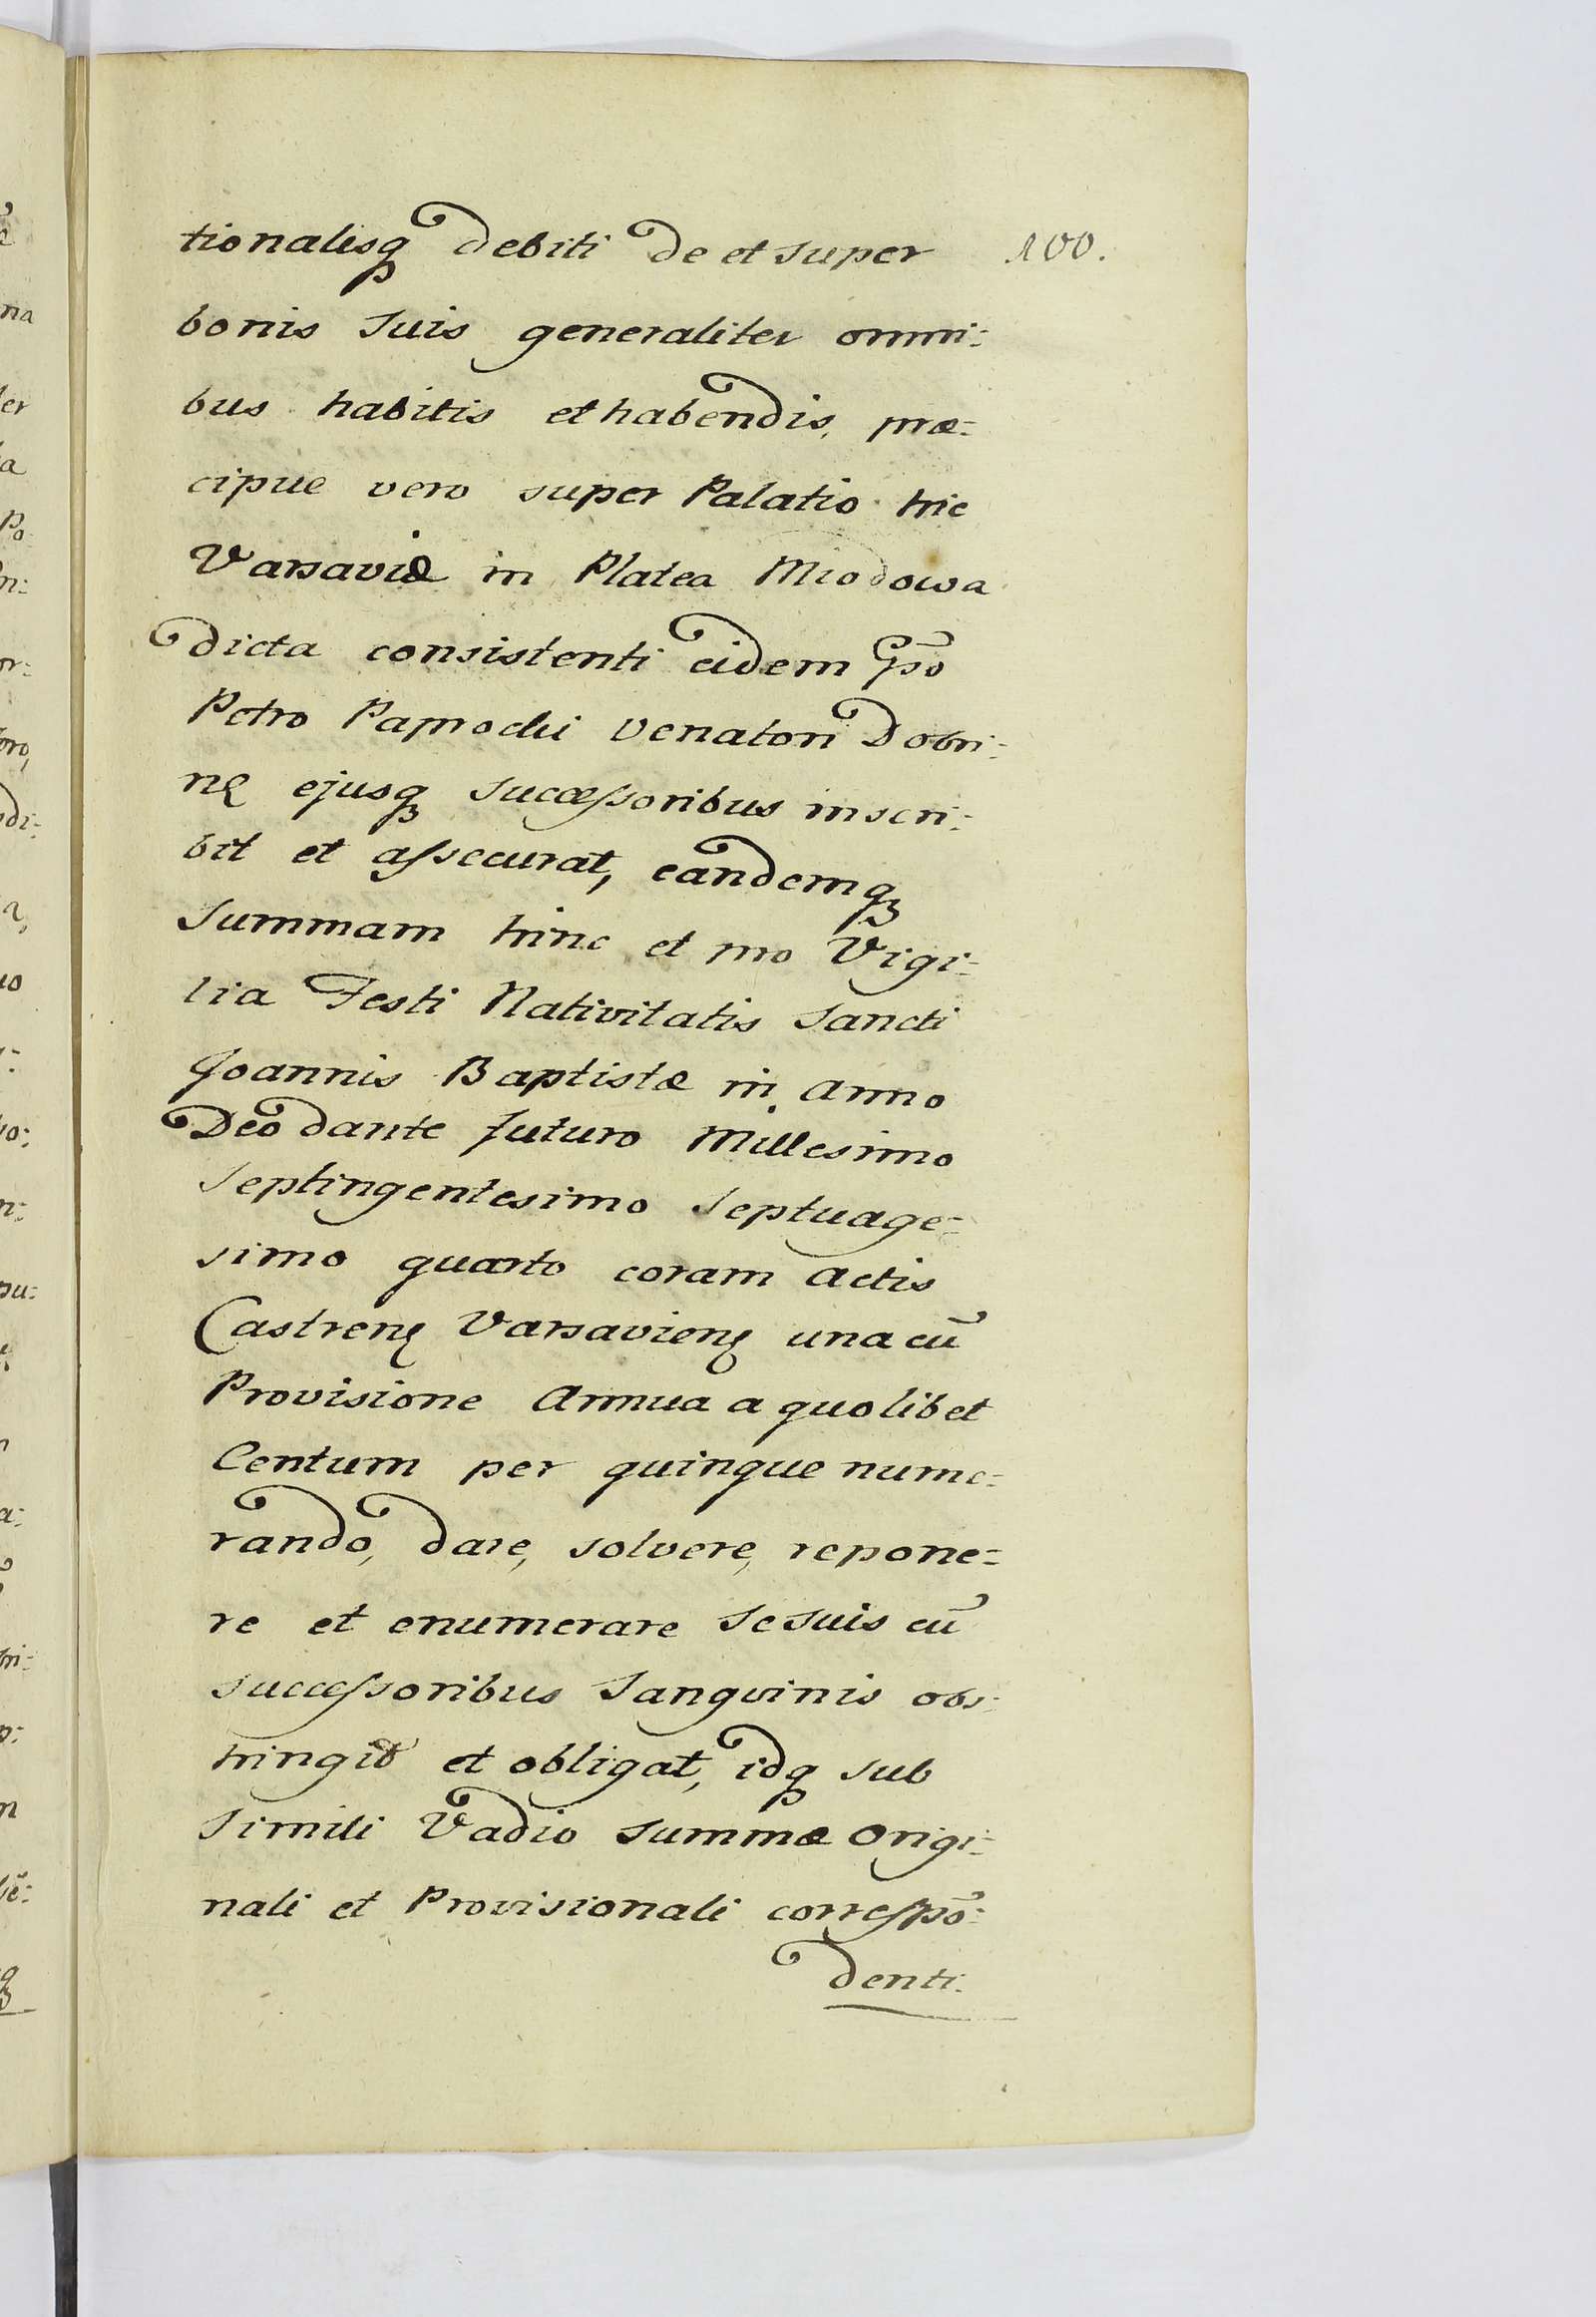 tionalisq debiti de et super 100.
bonis Suis generaliter omni:
bus habitis et habendis, præ:
cipue vero super Palatio hic
Varsaviæ in Platea Miodowa
dicta consistenti eidem Gso
Petro Paprocki Venatori Dobri:
nę ejusq successoribus inscri:
bit et assecurat, eandemq
Summam hinc et pro Vigi:
lia Festi Nativitatis Sancti
Joannis Baptistæ in Anno
Deo dante futuro Millesimo
Septingentesimo Septuage:
simo quarto coram Actis
Castrenę Varsavienę una cū
Provisione Annua a quolibet
Centum per quinque nume:
rando, dare, solvere, repone:
re et enumerare Se Suis cū
successoribus Sangvinis obs:
tringit et obligat, idq sub
Simili Vadio Summæ Origi:
nali et Provisionali correspō:
denti.